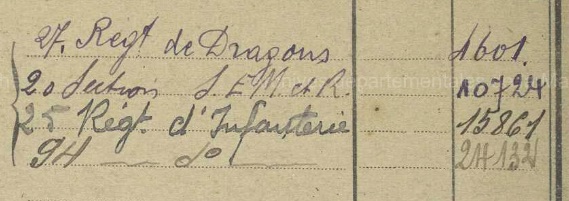 27. Régt de Dragons 1601.
20 Section S.E.M et R. 10724
25 Régt. d'Infanterie 15861
94 — do — 24132